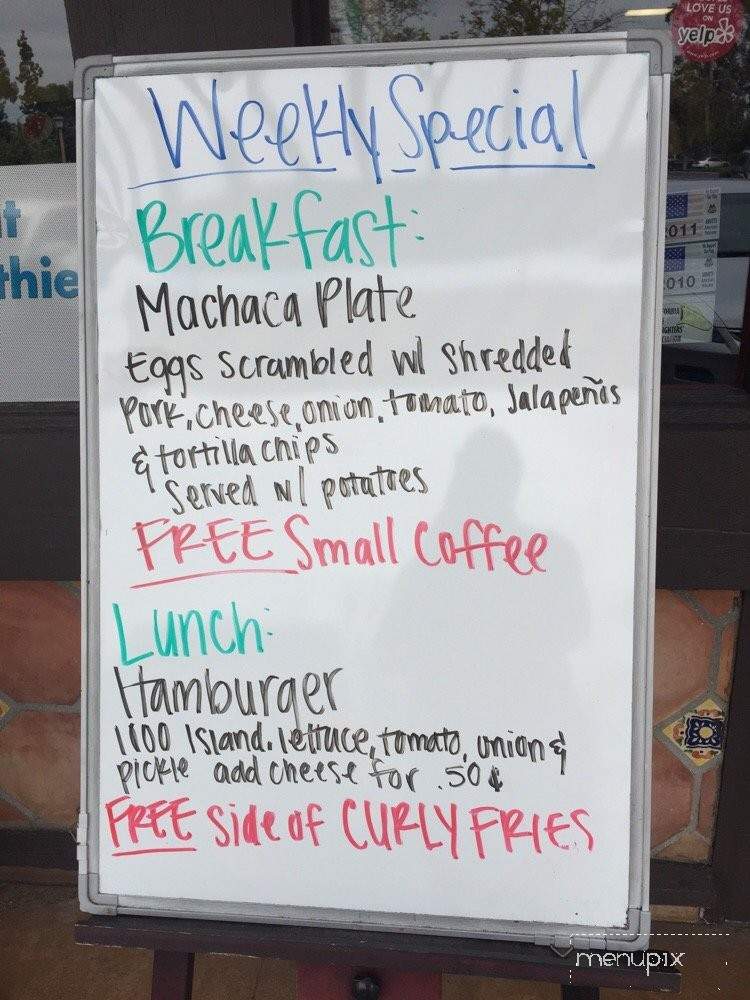 LOVE US
ON
yelp
Weekly Special
Breakfast:
Machaca Plate
Eggs scrambled w/ shredded
Pork, cheese, onion, tomato, Jalapeños
& tortilla chips
Served w/ potatoes
FREE Small Coffee
Lunch:
Hamburger
1100 Island, lettuce, tomato, onion &
pickle add cheese for .50¢
FREE side of CURLY FRIES
t
thie
2011
2010
menupix